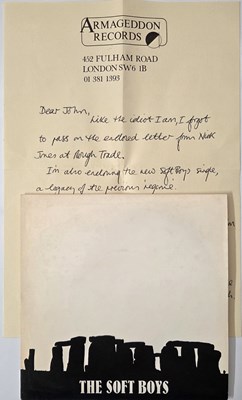 ARMAGEDDON
RECORDS
452 FULHAM ROAD
LONDON SW6 1B
01 381 1393
Dear John,
Like the idiot I am, I forgot
to pass on the enclosed letter from Nick
Jones at Rough Trade.
I'm also enclosing the new Soft Boys single,
a legacy of the previous regime.
THE SOFT BOYS